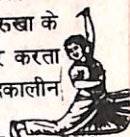 रुखा के
करता
कालीन